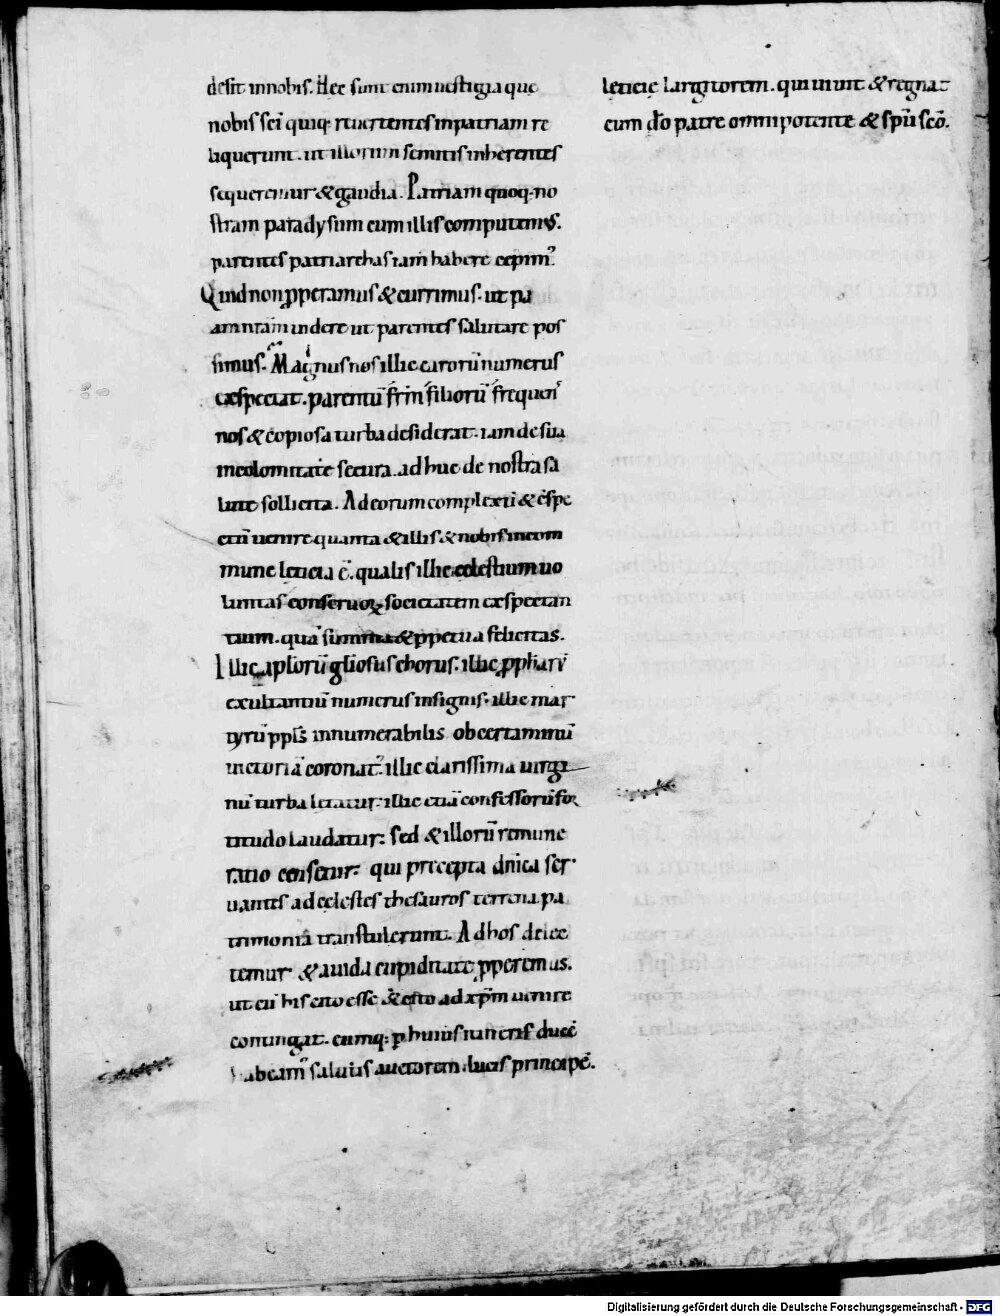 desit innobis. Hec sunt enim uestigia que
nobis sci̅ quiq; reuertentes inpatriam re
liquerunt. ut illorum semitis inherentes
sequeremur & gaudia. Patriam quoq; no
stram paradysum cum illis computemus.
parentes patriarchas iam habere cepim᷒.
Quid non pperamus & currimus. ut pa
triam uidere ut parentes salutare pos
simus. Magnus nos illic caroru̅ numerus
exspectat. parentu̅ fr̅m filioru̅ frequen̅
nos & copiosa turba desiderat. iam de sua
incolomitate secura. adhuc de nostra sa
lute sollicita. Ad eorum complexu̅ & c̅spe
ctu̅ uenire quanta & illis. & nobis incom
mune leticia e̅. qualis illic celestium uo
luntas conseruoꝝ societatem exspectan
tium. qua̅ summa & ppetua felicitas.
Illic aploru̅ gl̅iosus chorus. illic pphar̅u̅
exultantiu̅ numerus insignis. illic mar
tyru̅ ppl̅s innumerabilis ob certaminu̅
uictoria̅ coronat᷒. illic clarissima uirgi
nu̅ turba letatur. illic etia̅ confessoru̅ for
titudo laudatur. sed & illoru̅ remune
ratio censetur. qui precepta dn̅ica ser
uantes ad celestes thesauros terrena pa
trimonia transtulerunt. Ad hos delec
temur & auida cupiditate pperemus.
ut cu̅ his cito esse & cito ad xp̅m uenire
contingat. cumq; p huius itineris duce̅
habeam᷒ salutis auctorem. lucis principe̅.
leticie largitorem. qui uiuit & regnat
cum do̅ patre omnipotente & sp̅u sc̅o.
Digitalisierung gefördert durch die Deutsche Forschungsgemeinschaft - DFG